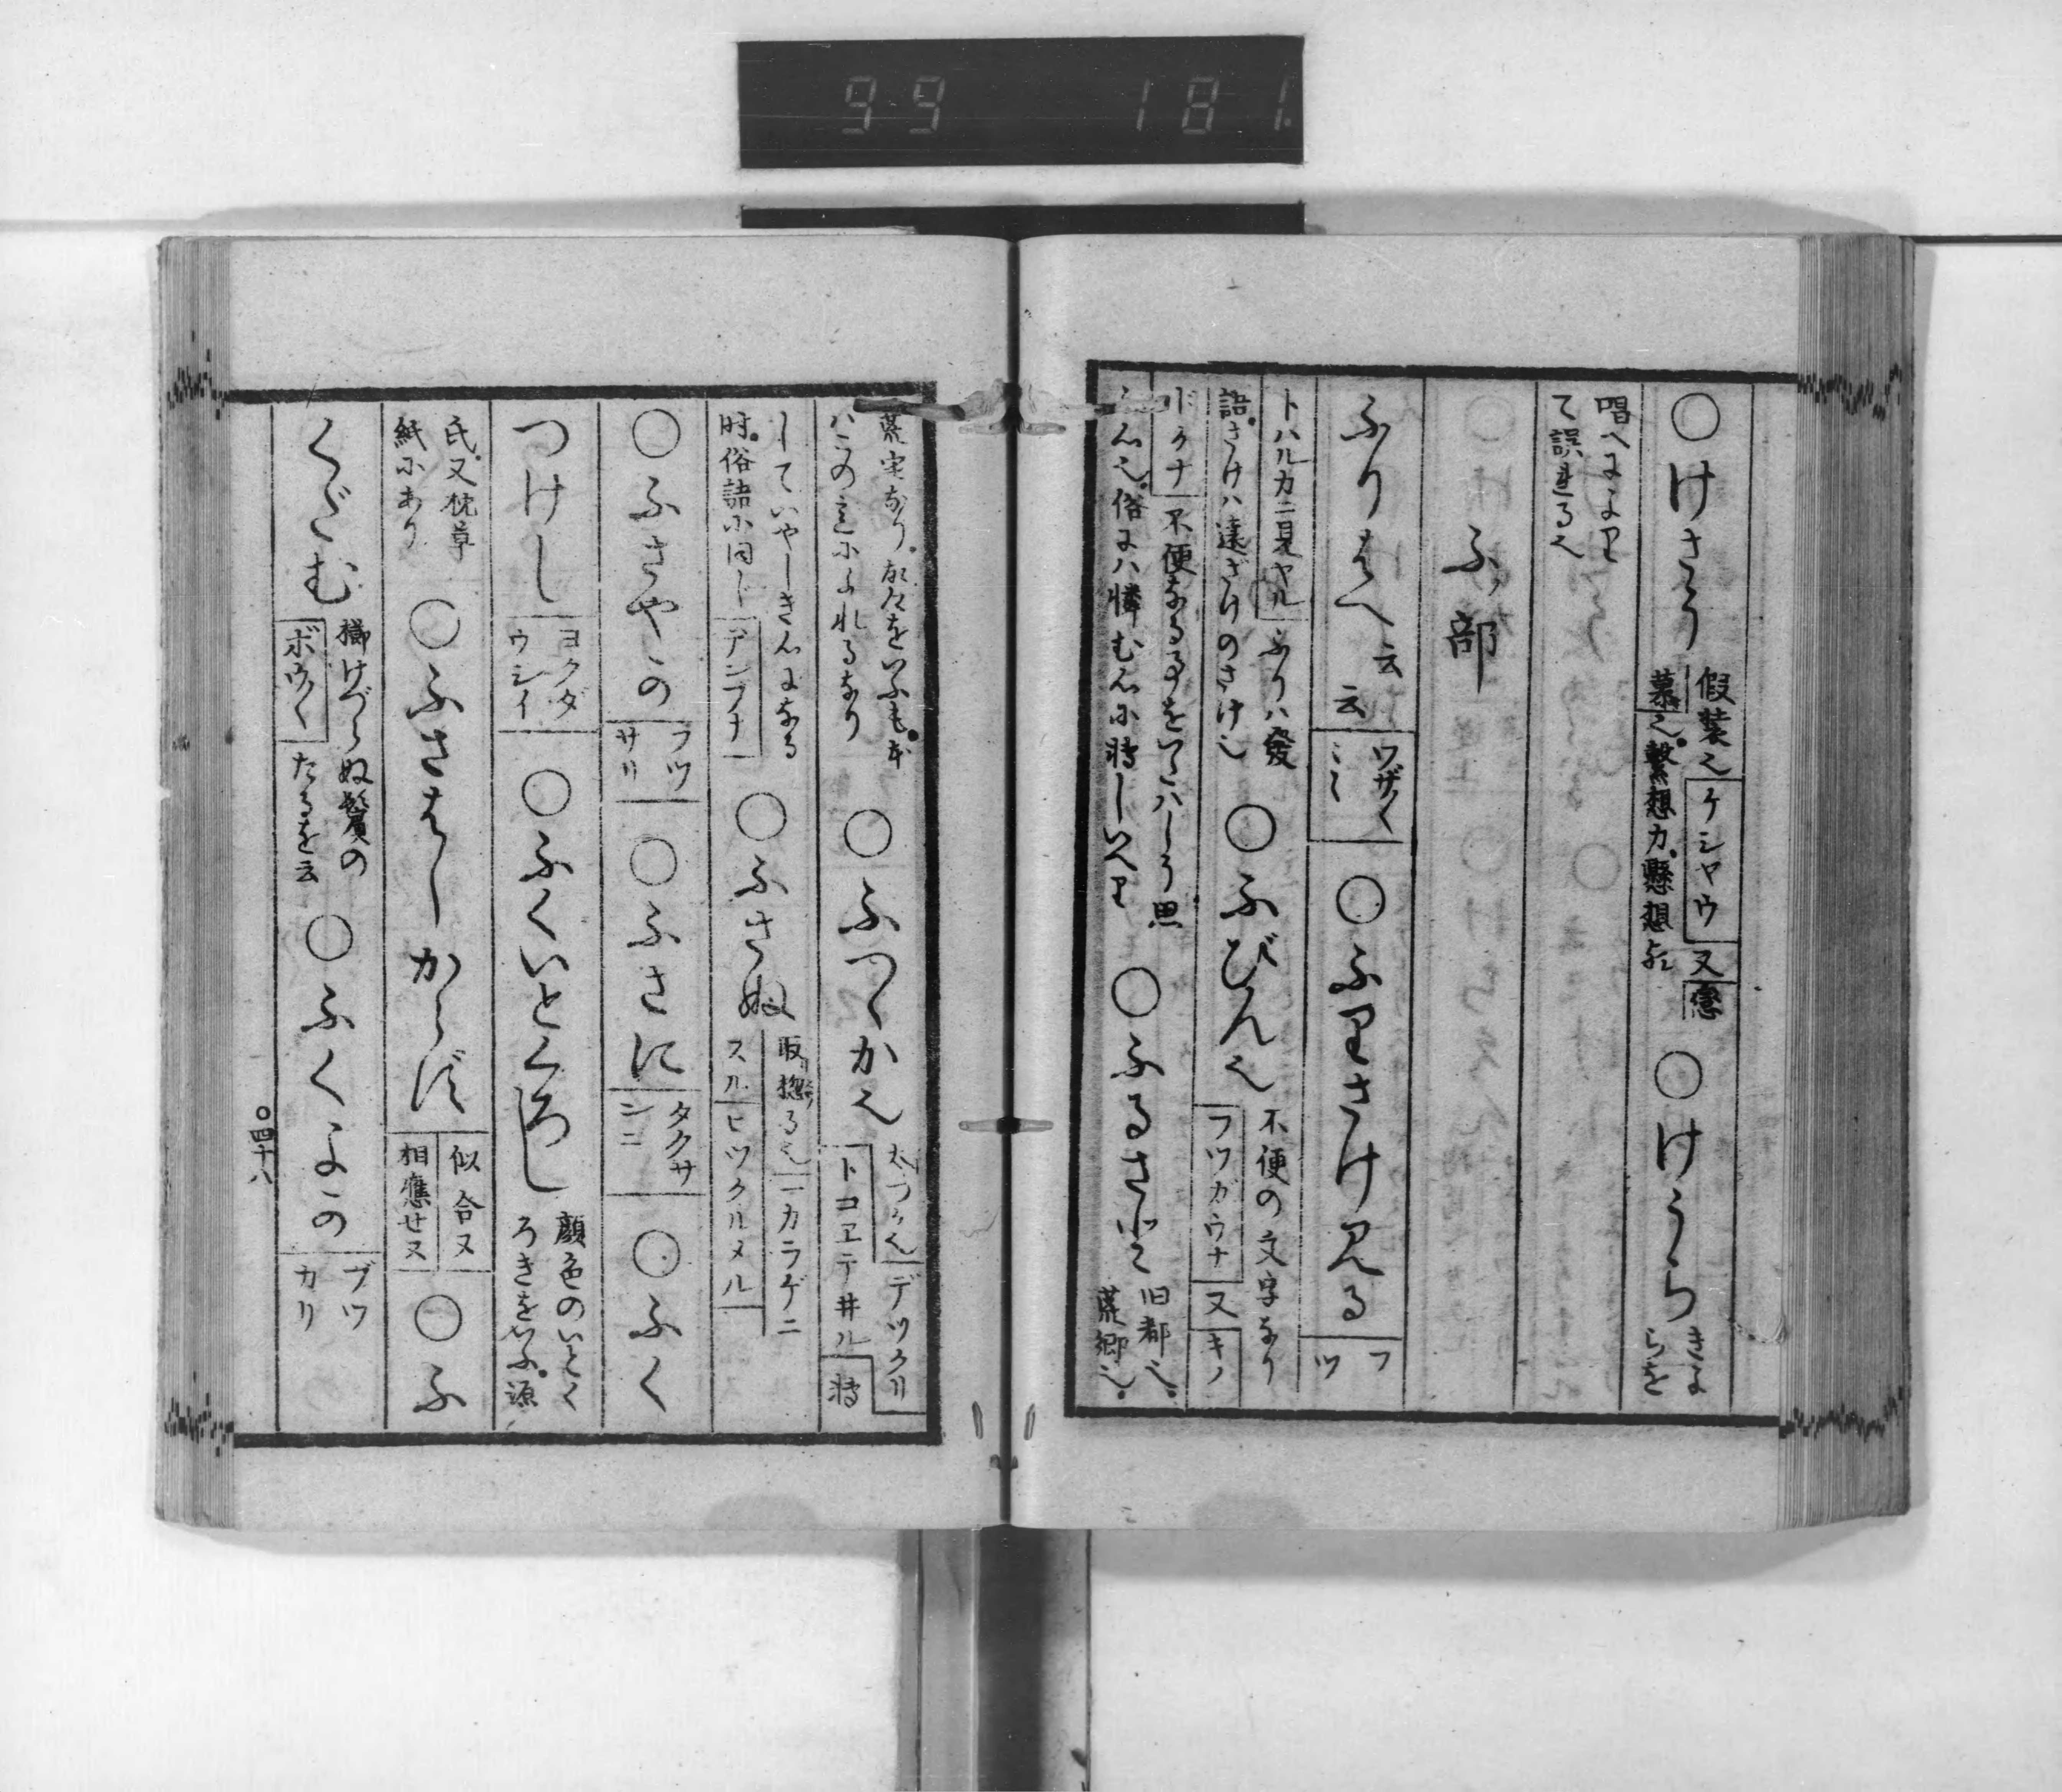 99 181.
○けさう 假装也 ケシヤウ 又 戀
慕也 繫想カ 懸想 ○けうら きよ
らを
唱へより
て誤れる也
ふノ部
ふりはへ 云云 ワザ〱 ○ふりさけみる フツ
トハルカニ見ヤル ふりハ發
語さけハ遠ざけのさけ也 ○ふびん也 不便の文字なり
フツガウナ 又 キノ
ドクナ 不便なる事をいたハしう思
ふ心也 俗にハ憐む心に轉しいへり ○ふるさと 旧都也
荒郷也
ハこの意にふれるなり ○ふつゝか也 太つか也 デツクリ
トコヱテ井ル 轉
していやしき心になる
時俗語に同じ アンプナ ○ふさぬ 取揔る也 一カラゲニ
スル ヒツクルメル
○ふさやか フツサリ ○ふさに タクサシニ ○ふく
つけし ヨクダウシイ ○ふくいとくろし 顔色のいとく
ろきをいふ 源
氏又枕草
紙にあり ○ふさはしからず 似合ヌ
相應せヌ ○ふ
くだむ 櫛けづらぬ鬢の
ボウ〱 たるを云 ○ふくよか ブツカリ
○四十八